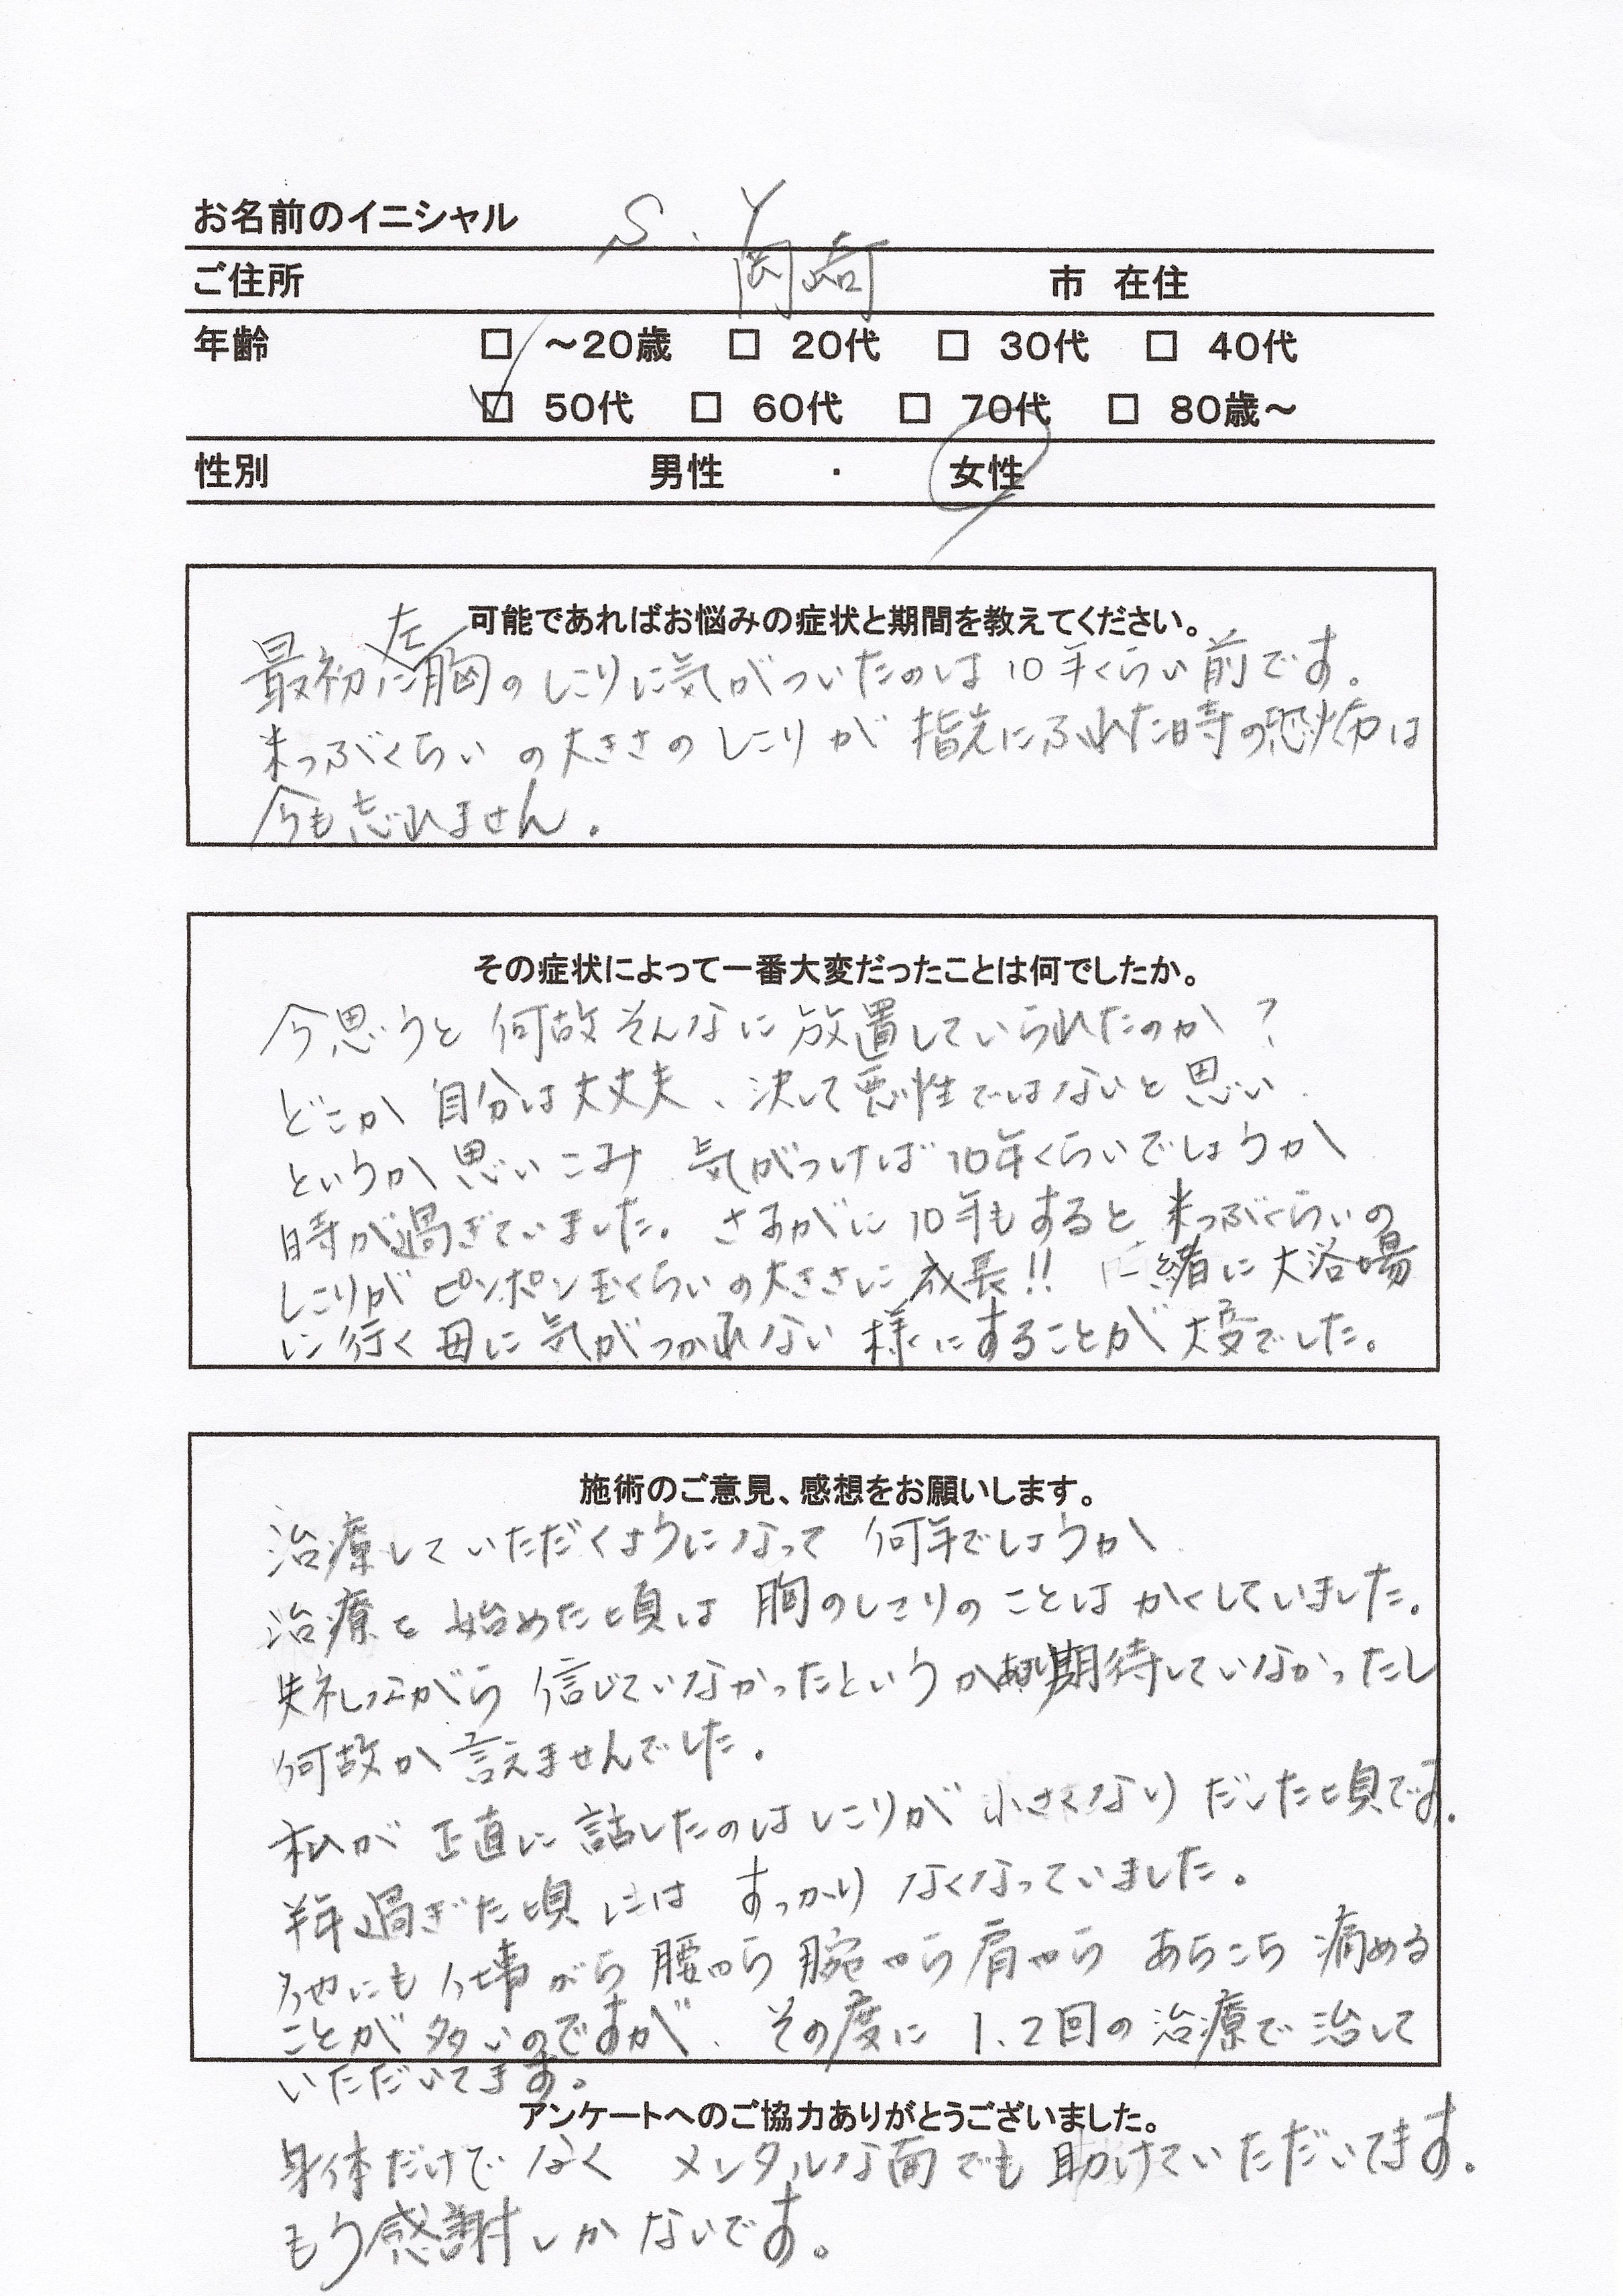 お名前のイニシャル S.Y
ご住所 岡崎 市 在住
年齢 □ ～20歳 □ 20代 □ 30代 □ 40代
☑ 50代 □ 60代 □ 70代 □ 80歳～
性別 男性 ・ 女性
可能であればお悩みの症状と期間を教えてください。
最初に左胸のしこりに気がついたのは10年くらい前です。
米つぶくらいの大きさのしこりが指先にふれた時の恐怖は
今も忘れません。
その症状によって一番大変だったことは何でしたか。
今思うと何故そんなに放置していられたのか?
どこか自分は大丈夫、決して悪性ではないと思い
というか思いこみ 気がつけば10年くらいでしょうか
時が過ぎていました。さすがに10年もすると米つぶくらいの
しこりがピンポン玉くらいの大きさに成長!! 一緒に大浴場
に行く母に気がつかれない様にすることが大変でした。
施術のご意見、感想をお願いします。
治療していただくようになって何年でしょうか
治療を始めた頃は胸のしこりのことはかくしていました。
失礼ながら信じていなかったというか期待していなかったし
何故か言えませんでした。
私が正直に話したのはしこりが小さくなりだした頃です。
半年過ぎた頃にはすっかりなくなっていました。
他にも仕事がら腰から腕から肩から あちこち痛める
ことが多いのですが、その度に1、2回の治療で治して
いただいてます。
アンケートへのご協力ありがとうございました。
身体だけでなく メンタルな面でも助けていただいてます。
もう感謝しかないです。